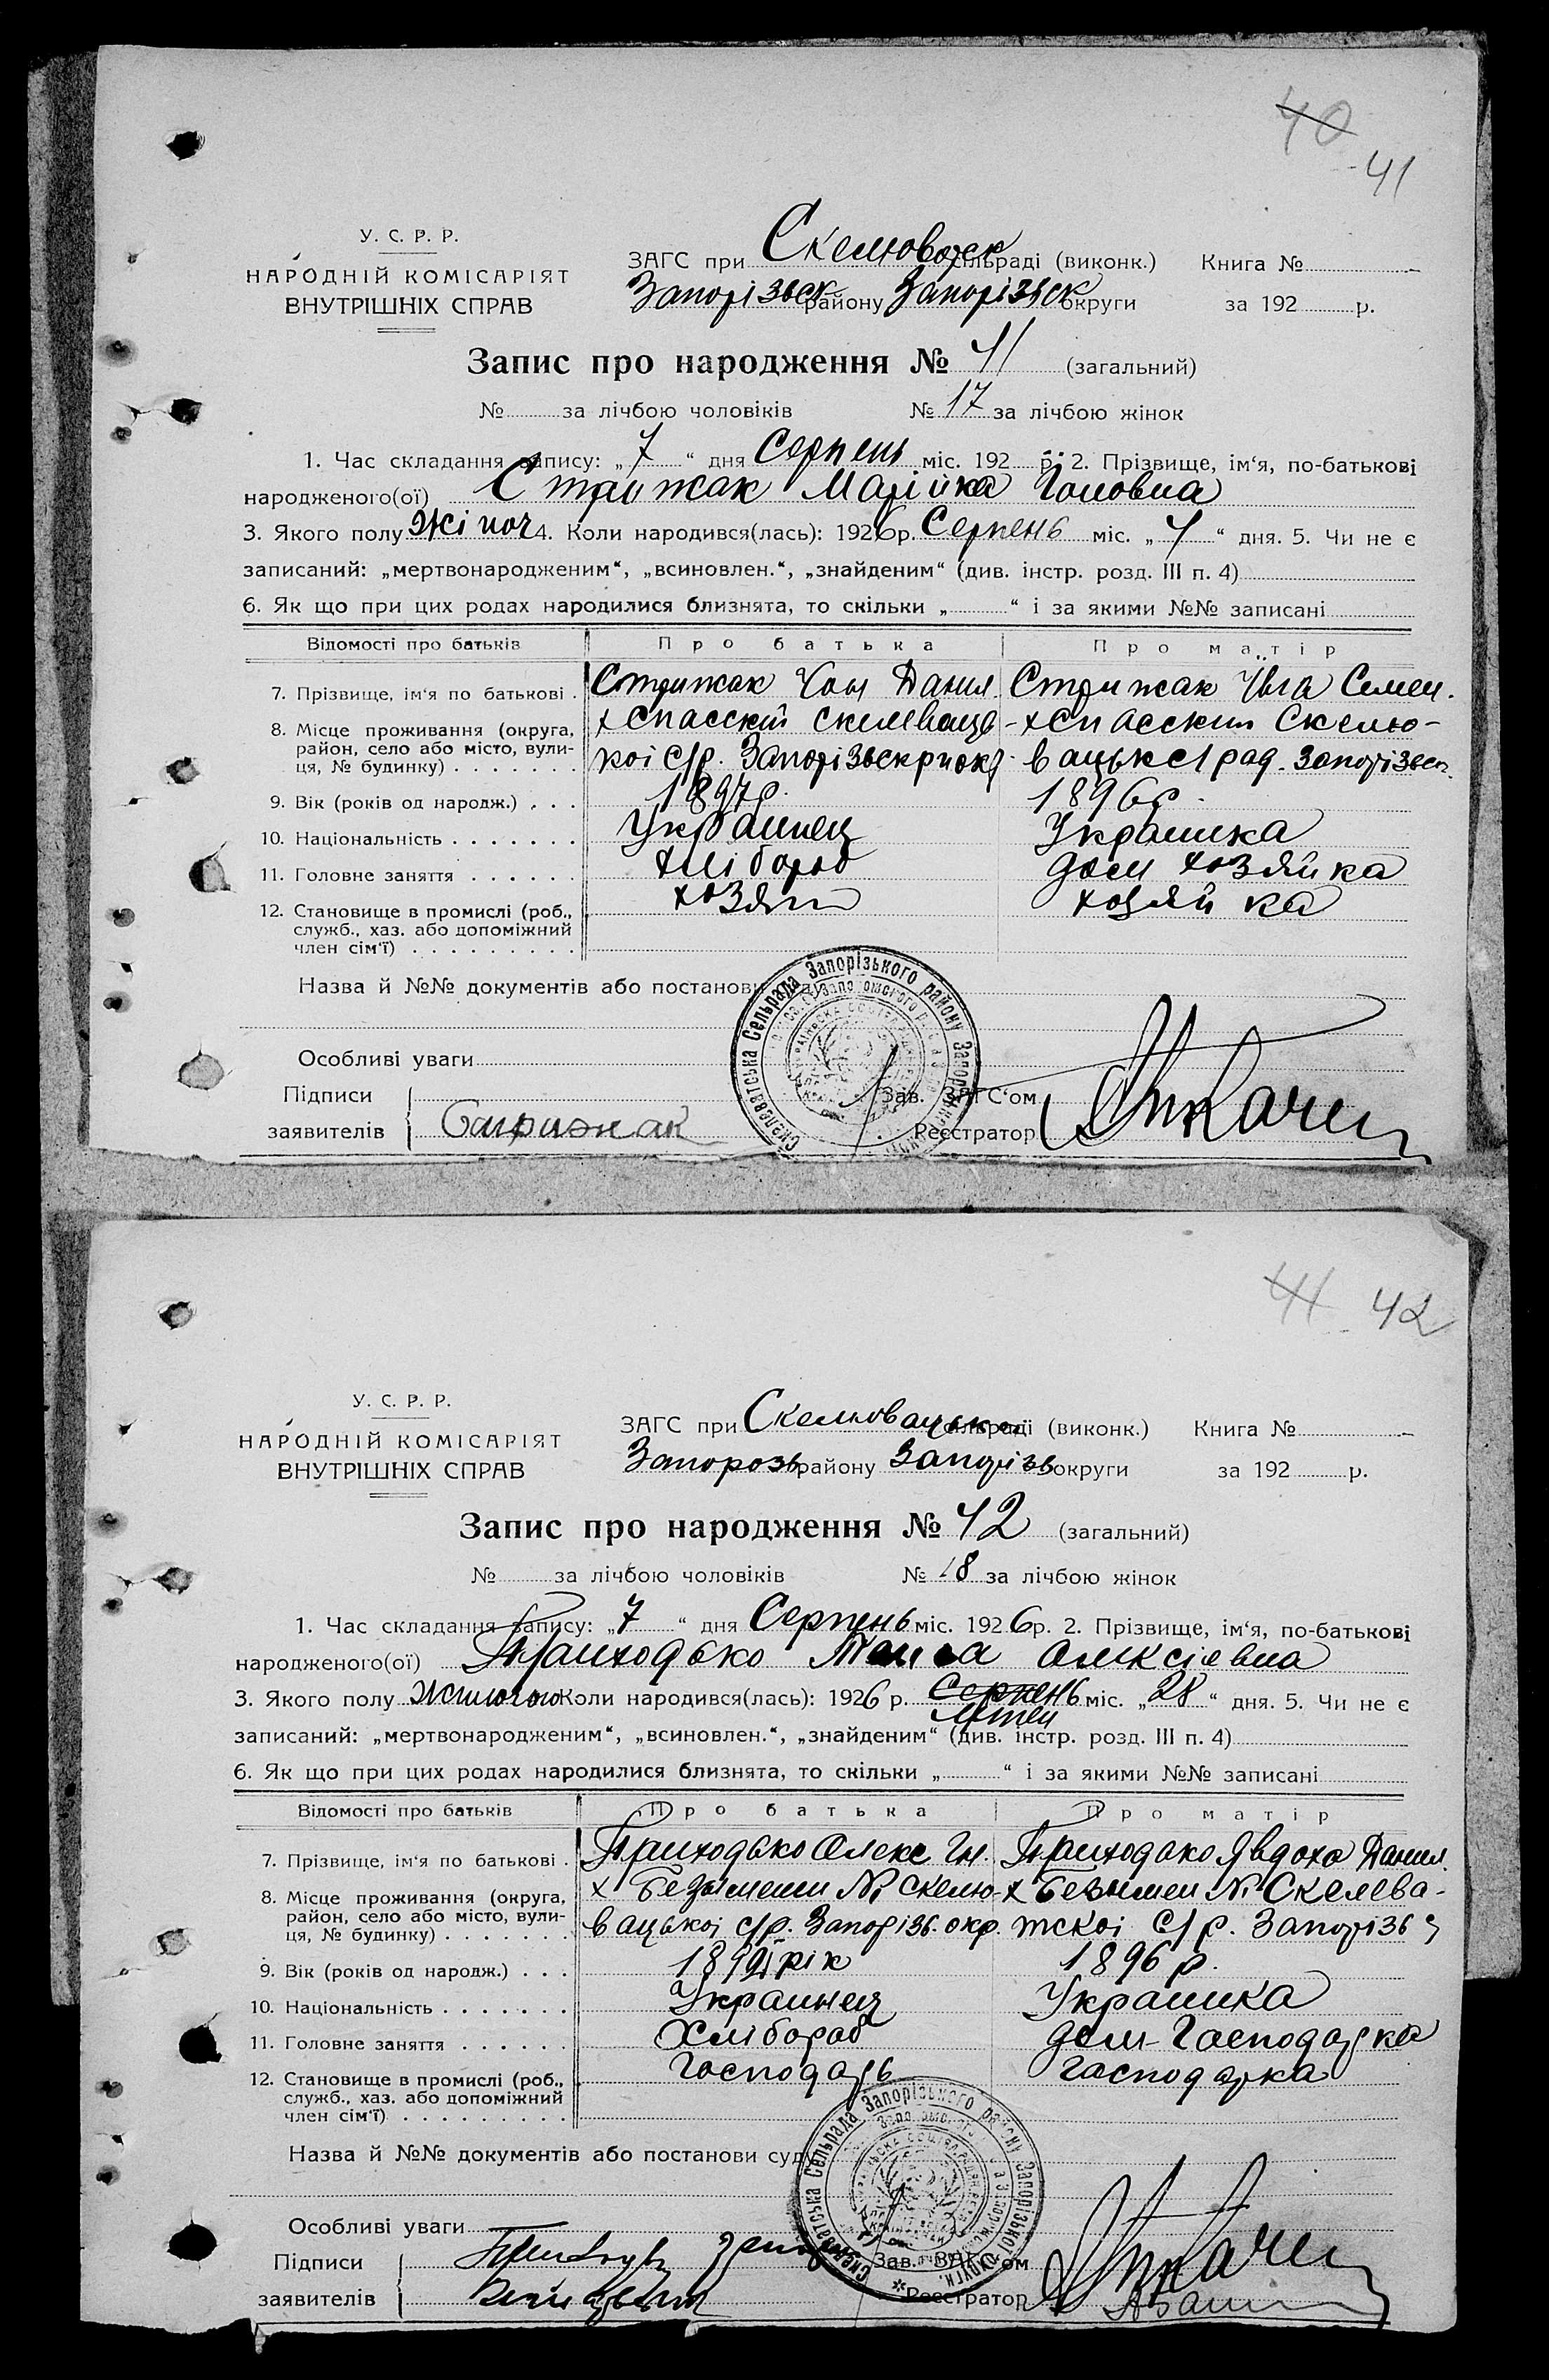 40
41
У. С. Р. Р.
НАРОДНІЙ КОМІСАРІЯТ
ВНУТРІШНІХ СПРАВ
ЗАГС при Скелювацк сільраді (виконк.) Книга №
Запорізьск району Запорізьск округи за 192 р.
Запис про народження № 41 (загальний)
№ за лічбою чоловіків № 17 за лічбою жінок
1. Час складання запису: „7“ дня Серпень міс. 192 р. 2. Прізвище, ім‘я, по-батькові
народженого(ої) Стрижак Марійка
3. Якого полу Жіноч 4. Коли народився(лась): 1926 р. Серпень міс. „4“ дня. 5. Чи не є
записаний: „мертвонародженим“, „всиновлен.“, „знайденим“ (див. інстр. розд. III п. 4)
6. Як що при цих родах народилися близнята, то скільки „ “ і за якими №№ записані
Відомості про батьків Про батька Про матір
7. Прізвище, ім‘я по батькові . Стрижак Данил. Стрижак Семен.
8. Місце проживання (округа, х Спасский Скелеваць- х Спасский Скелю-
район, село або місто, вули-
ця, № будинку) кої с/р. вацьк с/рад.
9. Вік (років од народж.) . . . 1897р. 1896р.
10. Національність Украинец Украинка
11. Головне заняття хлібороб дом хозяйка
12. Становище в промислі (роб., хозяин хозяйка
служб., хаз. або допоміжний
член сім‘ї)
Назва й №№ документів або постанови
Особливі уваги
Підписи
заявителів Стрижак
Зав. ЗАГС‘ом
Реєстратор
Скелеватська Сельрада Запорізького району Запорізької округи
41 42
У. С. Р. Р.
НАРОДНІЙ КОМІСАРІЯТ
ВНУТРІШНІХ СПРАВ
ЗАГС при Скелювацької сільраді (виконк.) Книга №
Запорозь району Запорізь округи за 192 р.
Запис про народження № 42 (загальний)
№ за лічбою чоловіків № 18 за лічбою жінок
1. Час складання запису: „7“ дня Серпень міс. 1926 р. 2. Прізвище, ім‘я, по-батькові
народженого(ої) Приходько Олексіевна
3. Якого полу Коли народився(лась): 1926 р. Серпень міс. „28“ дня. 5. Чи не є
Липец
записаний: „мертвонародженим“, „всиновлен.“, „знайденим“ (див. інстр. розд. III п. 4)
6. Як що при цих родах народилися близнята, то скільки „ “ і за якими №№ записані
Відомості про батьків Про батька Про матір
7. Прізвище, ім‘я по батькові . Приходько Олекс Приходько Явдоха Данил.
8. Місце проживання (округа, х Безымени №1 Скелю- х Безымен №1 Скелева-
район, село або місто, вули-
ця, № будинку) вацької с/р. Запорізь. окр. тскої с/р. Запорізь
9. Вік (років од народж.) . . . рік 1896 р.
10. Національність Украинец Украинка
11. Головне заняття Хлібороб дом-Господарка
12. Становище в промислі (роб., Господарь господарка
служб., хаз. або допоміжний
член сім‘ї)
Назва й №№ документів або постанови суду
Особливі уваги
Підписи
заявителів
Зав. ЗАГС‘ом
Реєстратор
Скелеватська Сельрада Запорізького району Запорізької округи